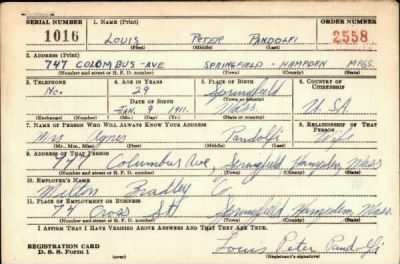 SERIAL NUMBER 1. NAME (Print) ORDER NUMBER
1016 LOUIS PETER PANDOLFI 2558
(First) (Middle) (Last)
2. ADDRESS (Print)
747 COLOMBUS-AVE SPRINGFIELD - HAMPDEN MASS.
(Number and street or R. F. D. number) (Town) (County) (State)
3. TELEPHONE 4. AGE IN YEARS 5. PLACE OF BIRTH 6. COUNTRY OF CITIZENSHIP
No. 29 Springfield
DATE OF BIRTH
JAN. 9 1911. Mass U.S.A
(Mo.) (Day) (Yr.) (State or country)
7. NAME OF PERSON WHO WILL ALWAYS KNOW YOUR ADDRESS 8. RELATIONSHIP OF THAT PERSON
Mrs Agnes Pandolfi Wife
(Mr., Mrs., Miss) (First) (Middle) (Last)
9. ADDRESS OF THAT PERSON
747 Columbus Ave, Springfield Hampden Mass
(Number and street or R. F. D. number) (Town) (County) (State)
10. EMPLOYER'S NAME
Milton Bradley Co
11. PLACE OF EMPLOYMENT OR BUSINESS
74 Cross St Springfield Hampden Mass.
(Number and street or R. F. D. number) (Town) (County) (State)
I AFFIRM THAT I HAVE VERIFIED ABOVE ANSWERS AND THAT THEY ARE TRUE.
REGISTRATION CARD
D. S. S. Form 1 (over) Louis Peter Pandolfi
(Registrant's signature)